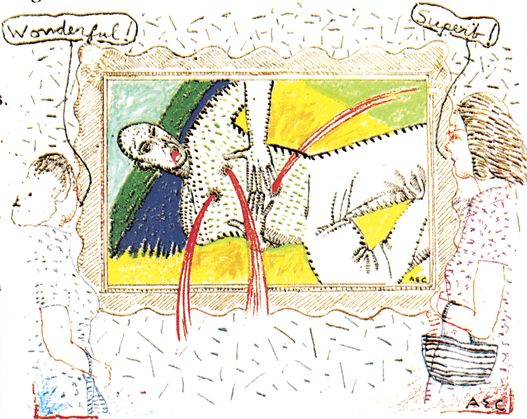 Wonderful!
Superb!
s.
A&C
A&C